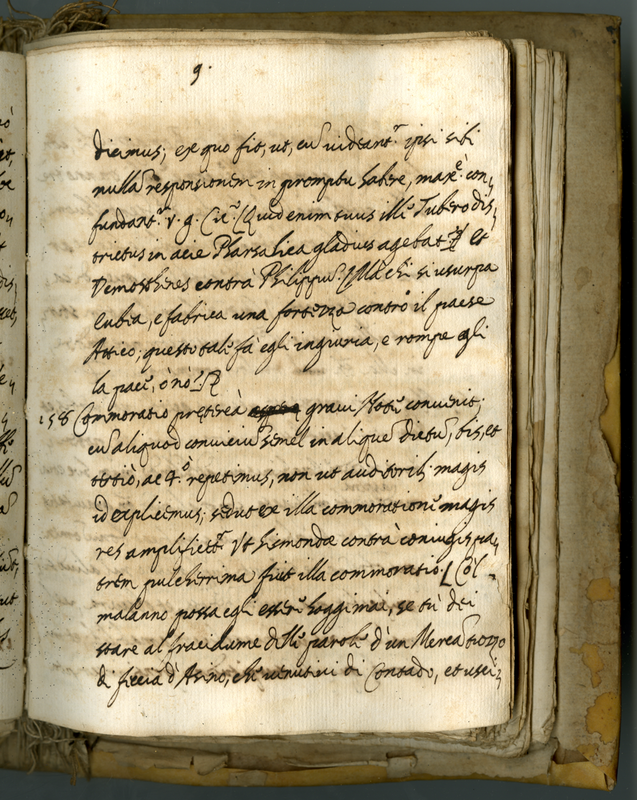 9.
dicimus; ex quo fit, ut, cũ uideantr ipsi sibi
nullã responsionem in promptu habere, maxe con„
fundantr. v. g. Cic. [Quid enim tuus ille Tubero dis„
trictus in acie Pharsalica gladius agebat?] et
Demosthenes contrà Philippũ. [Mà chi si usurpa
Eubia, e fabrica una fortezza contro il paese
Attico; questo tale fà egli ingiuria, e rompe gli
la pace, ò nò?]
158 Commoratio pretereà graui Actu conuenit;
cũ aliquod conuiciũ semel in aliquẽ dictũ, bis, et
tertiò, ac 4.o repetimus, non ut auditorib. magis
id explicemus; sed ut ex illa commoratione magis
res amplificetr. Vt Sismondæ contrà coniugis pa„
trem pulcherrima fuit illa commoratio. [Col
malanno possa egli essere hoggimai, se tù dei
stare al fracidume delle parole d'un Mercatiozzo
di feccia d'Asino, che venutici di Contado, et usci„